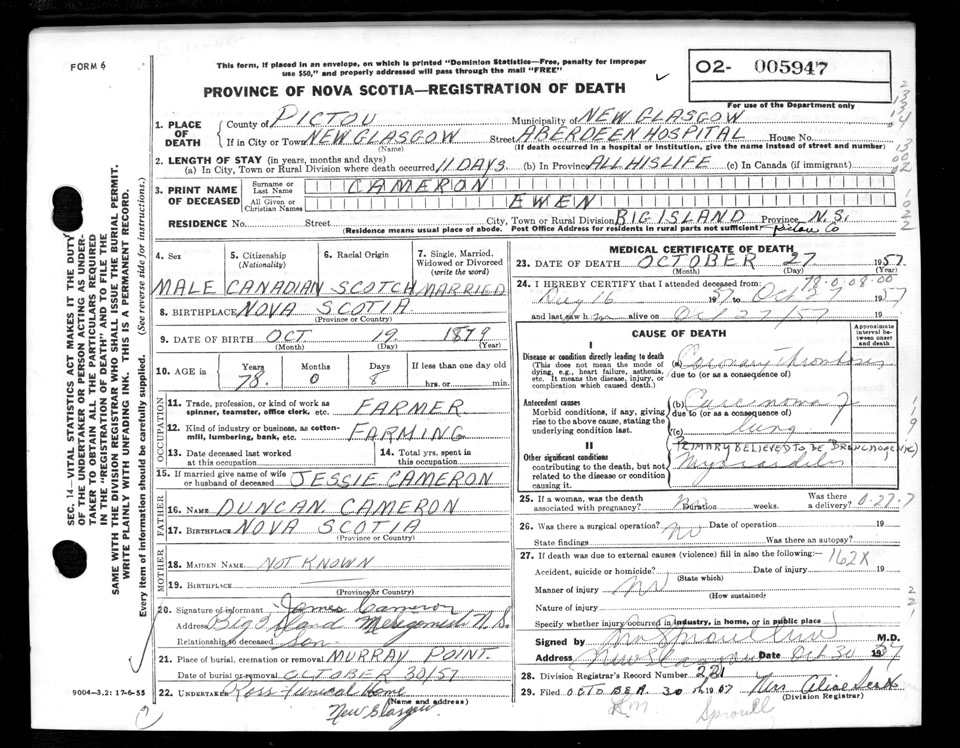 FORM 6
This form, if placed in an envelope, on which is printed "Dominion Statistics—Free, penalty for improper
use $50," and properly addressed will pass through the mail "FREE"
O2- 005947
For use of the Department only
PROVINCE OF NOVA SCOTIA—REGISTRATION OF DEATH
1. PLACE OF DEATH
County of PICTOU Municipality of NEW GLASGOW
If in City or Town NEW GLASGOW Street ABERDEEN HOSPITAL House No.
(Name) (If death occurred in a hospital or institution, give the name instead of street and number)
2. LENGTH OF STAY (in years, months and days)
(a) In City, Town or Rural Division where death occurred 11 DAYS (b) In Province ALL HIS LIFE (c) In Canada (if immigrant)
3. PRINT NAME OF DECEASED
Surname or Last Name CAMERON
All Given or Christian Names EWEN
RESIDENCE No. Street City, Town or Rural Division BIG ISLAND Province N.S.
(Residence means usual place of abode. Post Office Address for residents in rural parts not sufficient) Pictou Co
4. Sex 5. Citizenship (Nationality) 6. Racial Origin 7. Single, Married, Widowed or Divorced (write the word)
MALE CANADIAN SCOTCH MARRIED
8. BIRTHPLACE NOVA SCOTIA
(Province or Country)
9. DATE OF BIRTH OCT. 19. 1879
(Month) (Day) (Year)
10. AGE in Years Months Days If less than one day old
78. 0 8 hrs. or min.
OCCUPATION
11. Trade, profession, or kind of work as spinner, teamster, office clerk, etc. FARMER
12. Kind of industry or business, as cotton-mill, lumbering, bank, etc. FARMING
13. Date deceased last worked at this occupation 14. Total yrs. spent in this occupation
15. If married give name of wife or husband of deceased JESSIE CAMERON
FATHER
16. Name DUNCAN CAMERON
17. Birthplace NOVA SCOTIA
(Province or Country)
MOTHER
18. Maiden Name NOT KNOWN
19. Birthplace
(Province or Country)
20. Signature of informant James Cameron
Address Big Island Merigomish N.S.
Relationship to deceased Son
21. Place of burial, cremation or removal MURRAY POINT.
Date of burial or removal OCTOBER 30/57
22. UNDERTAKER Ross Funeral Home
(Name and address)
New Glasgow
9004—3.2: 17-6-55
MEDICAL CERTIFICATE OF DEATH
23. DATE OF DEATH OCTOBER 27 1957.
(Month) (Day) (Year)
24. I HEREBY CERTIFY that I attended deceased from: 78-0-08-00
Aug 16 1957 to Oct 27 1957
and last saw him alive on Oct 27/57
CAUSE OF DEATH
Approximate interval between onset and death
I
Disease or condition directly leading to death
(This does not mean the mode of dying, e.g., heart failure, asthenia, etc. It means the disease, injury, or complication which caused death.)
(a) Coronary Thrombosis
due to (or as a consequence of)
Antecedent causes
Morbid conditions, if any, giving rise to the above cause, stating the underlying condition last.
(b) Carcinoma of
due to (or as a consequence of)
(c) lung
PRIMARY BELIEVED TO BE BRONCHOGENIC)
II
Other significant conditions
contributing to the death, but not related to the disease or condition causing it.
25. If a woman, was the death associated with pregnancy? no Duration weeks. Was there a delivery?
26. Was there a surgical operation? no Date of operation 19
State findings Was there an autopsy?
27. If death was due to external causes (violence) fill in also the following:— 162X
Accident, suicide or homicide? Date of injury 19
(State which)
Manner of injury no
(How sustained)
Nature of injury
Specify whether injury occurred in industry, in home, or in public place
Signed by M.D.
Address New Glasgow Date Oct 30 1957
28. Division Registrar's Record Number 231
29. Filed OCTOBER 30th 1957 Miss
(Division Registrar)
Sproull
SEC. 14—VITAL STATISTICS ACT MAKES IT THE DUTY
OF THE UNDERTAKER OR PERSON ACTING AS UNDER-
TAKER TO OBTAIN ALL THE PARTICULARS REQUIRED
IN THE "REGISTRATION OF DEATH" AND TO FILE THE
SAME WITH THE DIVISION REGISTRAR WHO SHALL ISSUE THE BURIAL PERMIT.
WRITE PLAINLY WITH UNFADING INK. THIS IS A PERMANENT RECORD.
Every item of information should be carefully supplied. (See reverse side for instructions.)